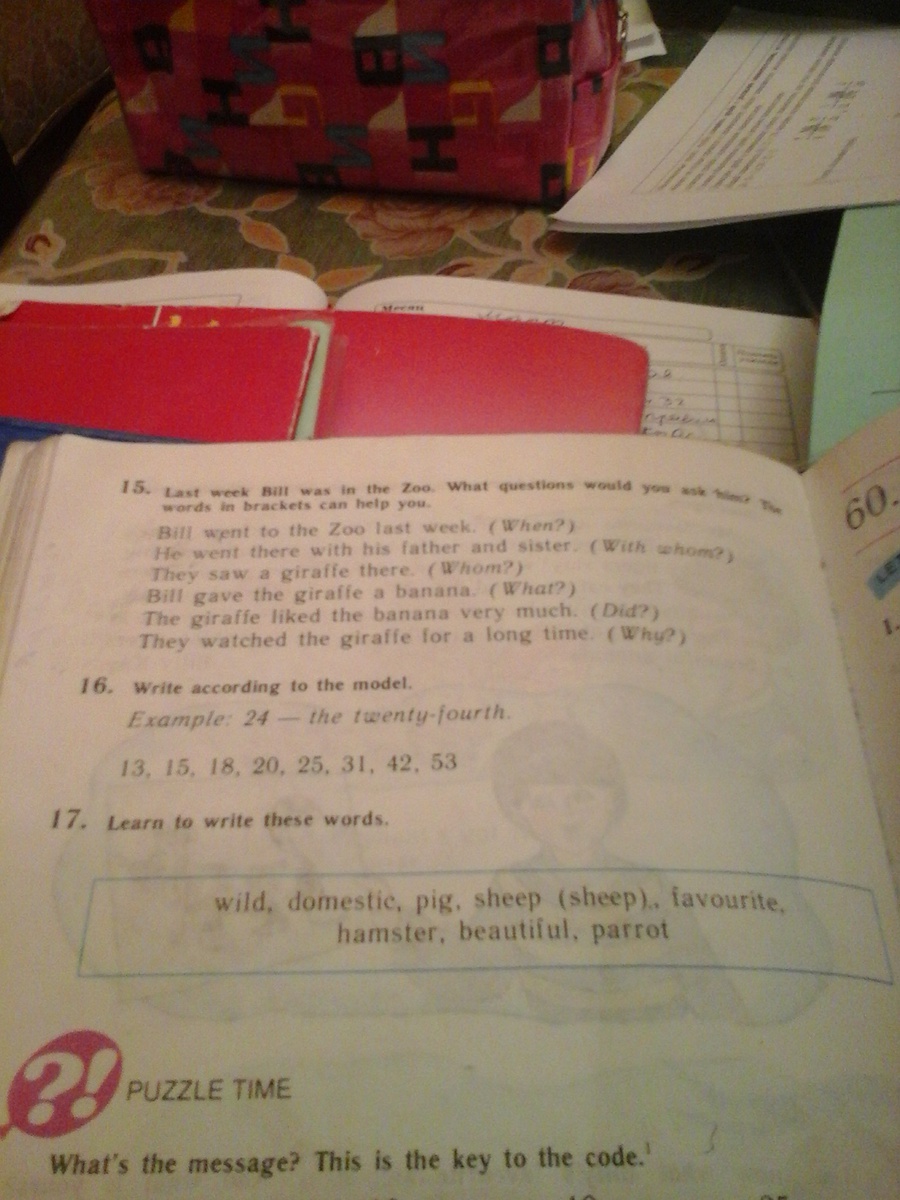 15. Last week Bill was in the Zoo. What questions would you ask him? The
words in brackets can help you.
Bill went to the Zoo last week. (When?)
He went there with his father and sister. (With whom?)
They saw a giraffe there. (Whom?)
Bill gave the giraffe a banana. (What?)
The giraffe liked the banana very much. (Did?)
They watched the giraffe for a long time. (Why?)
16. Write according to the model.
Example: 24 — the twenty-fourth.
13, 15, 18, 20, 25, 31, 42, 53
17. Learn to write these words.
wild, domestic, pig, sheep (sheep), favourite,
hamster, beautiful, parrot
?! PUZZLE TIME
What's the message? This is the key to the code.¹
60.